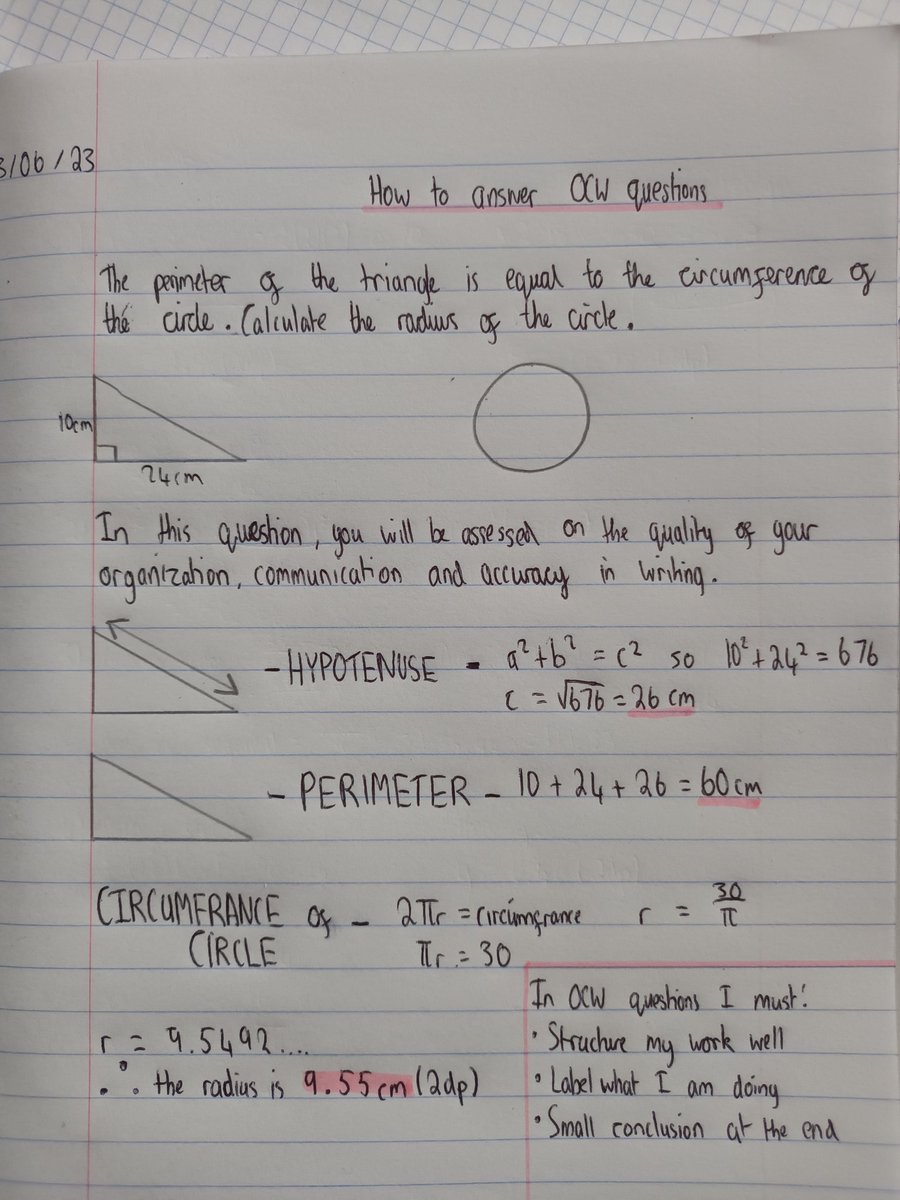 3/06/23
How to answer OCW questions
The perimeter of the triangle is equal to the circumference of
the circle. Calculate the radius of the circle.
10cm
24cm
In this question, you will be assessed on the quality of your
organization, communication and accuracy in writing.
- HYPOTENUSE - a² + b² = c² so 10² + 24² = 676
c = √676 = 26 cm
- PERIMETER - 10 + 24 + 26 = 60cm
CIRCUMFRANCE of - 2πr = circumfrance r = 30/π
CIRCLE πr = 30
r = 9.5492....
∴ the radius is 9.55cm (2dp)
In OCW questions I must:
• Structure my work well
• Label what I am doing
• Small conclusion at the end